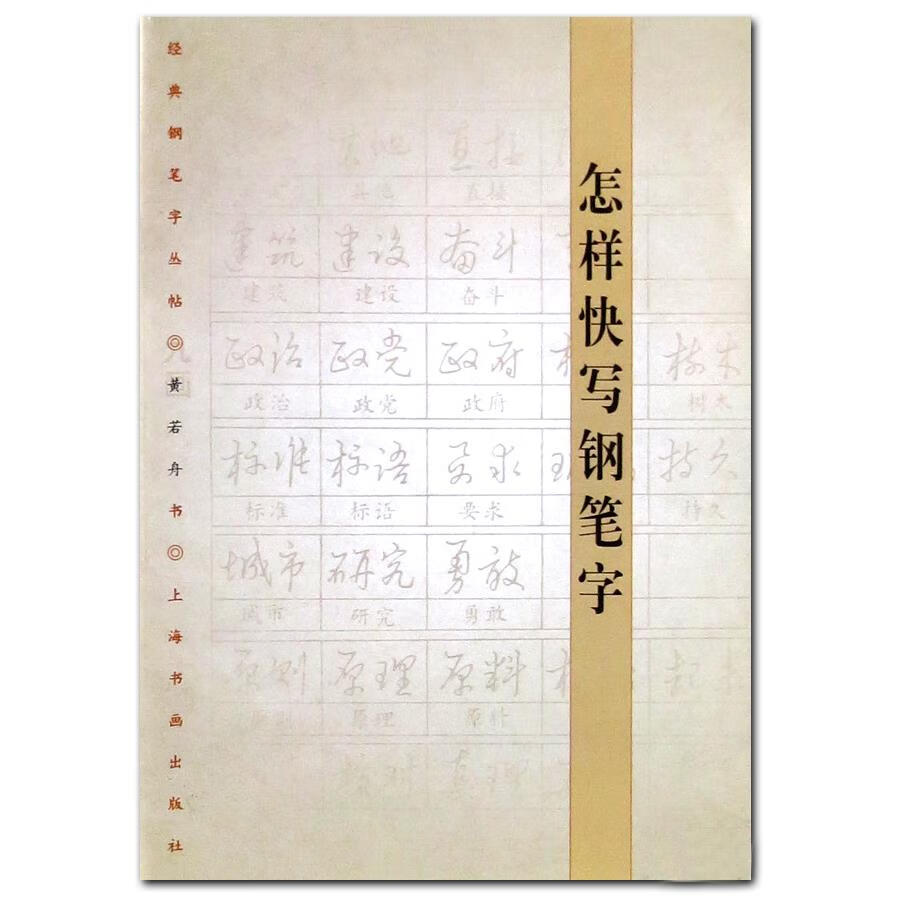 怎样快写钢笔字
经典钢笔字丛帖◎黄若舟书◎上海书画出版社
其他 直接
其他 直接
建筑 建设 奋斗
建筑 建设 奋斗
政治 政党 政府 树木
政治 政党 政府 树木
标准 标语 要求 持久
标准 标语 要求 持久
城市 研究 勇敢
城市 研究 勇敢
原则 原理 原料
原则 原理 原料
真理